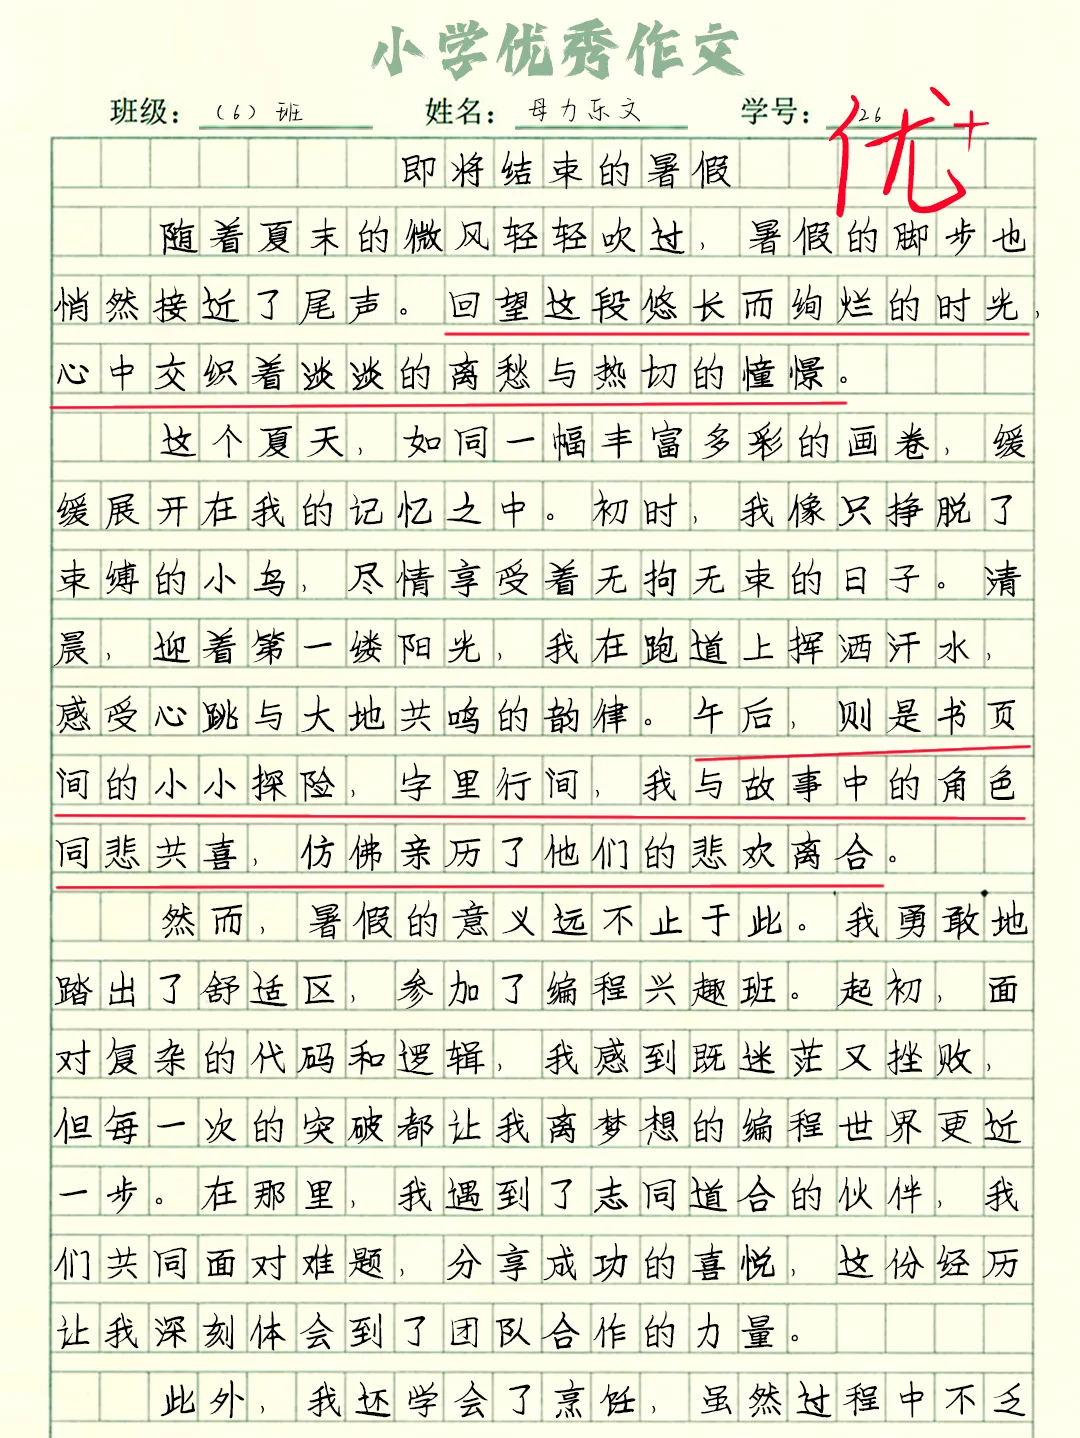 小学优秀作文
班级：（6）班 姓名：母力乐文 学号：26
优+
即将结束的暑假
随着夏末的微风轻轻吹过，暑假的脚步也
悄然接近了尾声。回望这段悠长而绚烂的时光，
心中交织着淡淡的离愁与热切的憧憬。
这个夏天，如同一幅丰富多彩的画卷，缓
缓展开在我的记忆之中。初时，我像只挣脱了
束缚的小鸟，尽情享受着无拘无束的日子。清
晨，迎着第一缕阳光，我在跑道上挥洒汗水，
感受心跳与大地共鸣的韵律。午后，则是书页
间的小小探险，字里行间，我与故事中的角色
同悲共喜，仿佛亲历了他们的悲欢离合。
然而，暑假的意义远不止于此。我勇敢地
踏出了舒适区，参加了编程兴趣班。起初，面
对复杂的代码和逻辑，我感到既迷茫又挫败，
但每一次的突破都让我离梦想的编程世界更近
一步。在那里，我遇到了志同道合的伙伴，我
们共同面对难题，分享成功的喜悦，这份经历
让我深刻体会到了团队合作的力量。
此外，我还学会了烹饪，虽然过程中不乏